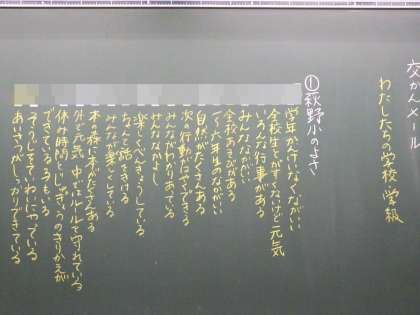 交かんメール
わたしたちの学校、学級
①荻野小のよさ
学年かんけいなくなかがいい
全校生とが少ないけど元気
いろんな行事がある
みんななかがいい
全校あそびがある
1〜6年生のなかがいい
自然がたくさんある
次の行動がはやくできる
みんながわかりあっている
みんななかよし
楽しくべんきょうしている
ちゃんと話をきける
みんなが楽しんでいる
本の森に本がたくさんある
外で元気、中ではルールを守れている
休み時間とじゅぎょうのきりかえが
できている子もいる
そうじをていねいにやっている
あいさつがしっかりできている